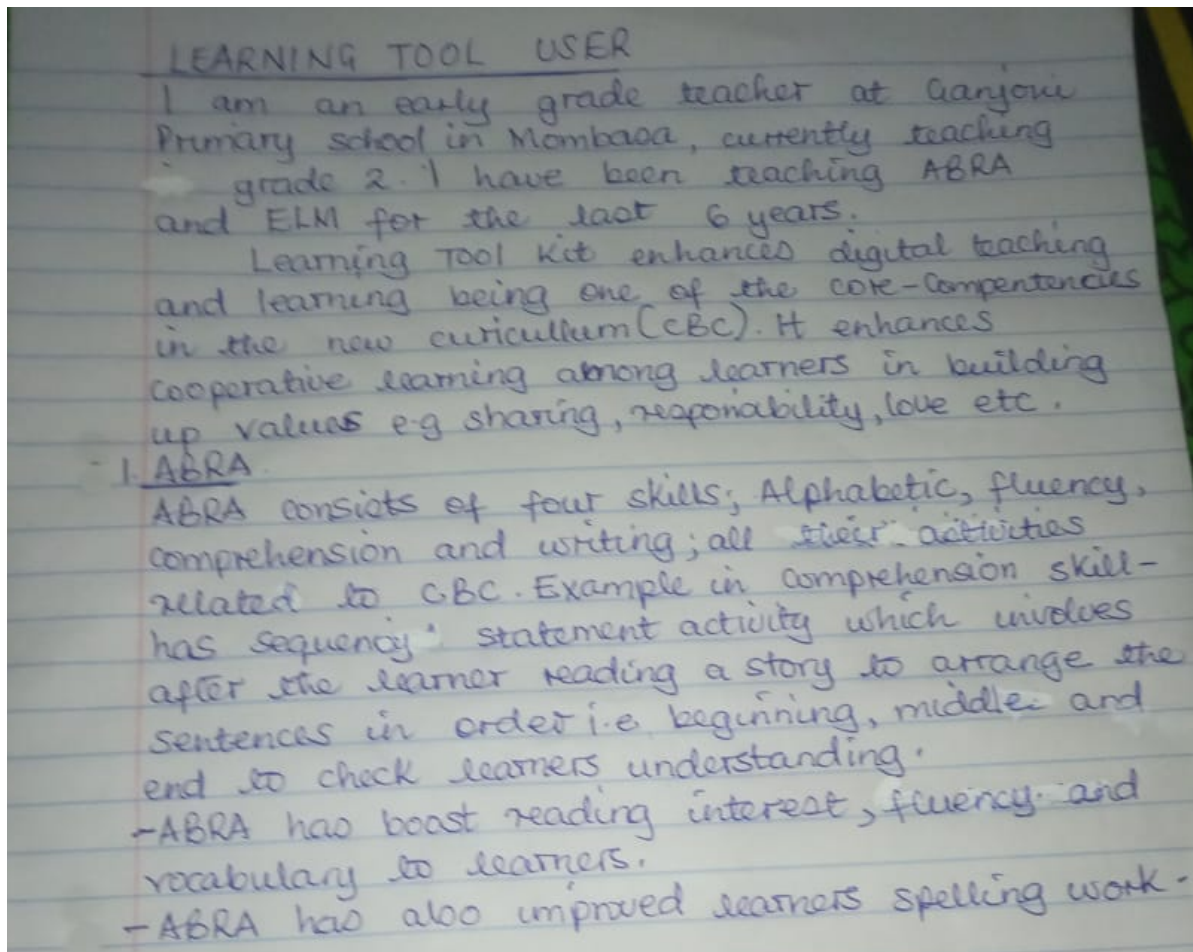 LEARNING TOOL USER
I am an early grade teacher at Ganjoni
Primary school in Mombasa, currently teaching
grade 2. I have been teaching ABRA
and ELM for the last 6 years.
Learning Tool Kit enhances digital teaching
and learning being one of the core-Compentencies
in the new curicullum (CBC). It enhances
cooperative learning among learners in building
up values e.g sharing, responsability, love etc.
1. ABRA
ABRA consists of four skills; Alphabetic, fluency,
comprehension and writing; all their activities
related to CBC. Example in comprehension skill-
has sequency statement activity which involves
after the learner reading a story to arrange the
sentences in order i.e beginning, middle and
end to check learners understanding.
-ABRA has boast reading interest, fluency and
vocabulary to learners.
-ABRA has also improved learners spelling work.